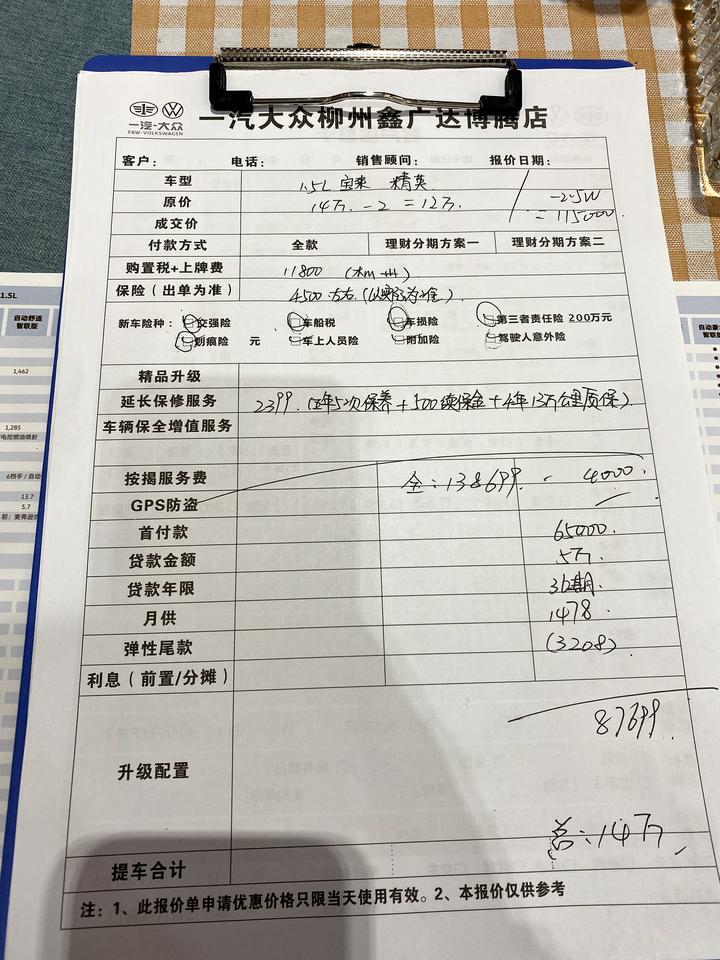 一汽-大众
FAW-VOLKSWAGEN
一汽大众柳州鑫广达博腾店
客户： 电话： 销售顾问： 报价日期：
车型 1.5L 宝来 精英
原价 14万 -2 =12万. -2.5W
成交价 =115000.
付款方式 全款 理财分期方案一 理财分期方案二
购置税+上牌费 11800
保险（出单为准） 4500左右.(以实际为准).
新车险种： 交强险 车船税 车损险 第三者责任险 200万元
划痕险 元 车上人员险 附加险 驾驶人意外险
精品升级
延长保修服务 2399. 5次保养+500续保金+4年13万公里质保)
车辆保全增值服务
按揭服务费 全:138699. - 4000.
GPS防盗
首付款 65000.
贷款金额 5万.
贷款年限 36期.
月供 1478.
弹性尾款 (3208).
利息（前置/分摊）
87699.
升级配置
总:14万
提车合计
注：1、此报价单申请优惠价格只限当天使用有效。2、本报价仅供参考
1.5L
自动舒适
智联版
1,462
1,285
电控燃油喷射
6档手/自动
13.7
5.7
前：麦弗逊式
自动豪
智联